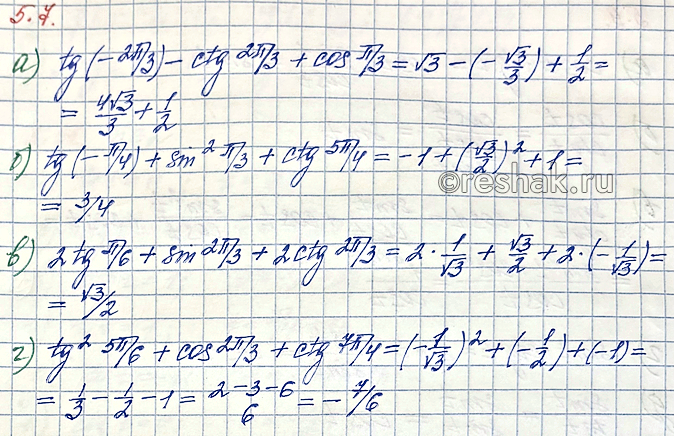 5.7.
а) tg(-2π/3) - ctg 2π/3 + cos π/3 = √3 - (-√3/3) + 1/2 =
= 4√3/3 + 1/2
б) tg(-π/4) + sin² π/3 + ctg 5π/4 = -1 + (√3/2)² + 1 =
©reshak.ru
= 3/4
в) 2 tg π/6 + sin 2π/3 + 2 ctg 2π/3 = 2 · 1/√3 + √3/2 + 2 · (-1/√3) =
= √3/2
г) tg² 5π/6 + cos 2π/3 + ctg 7π/4 = (-1/√3)² + (-1/2) + (-1) =
= 1/3 - 1/2 - 1 = 2-3-6/6 = - 7/6